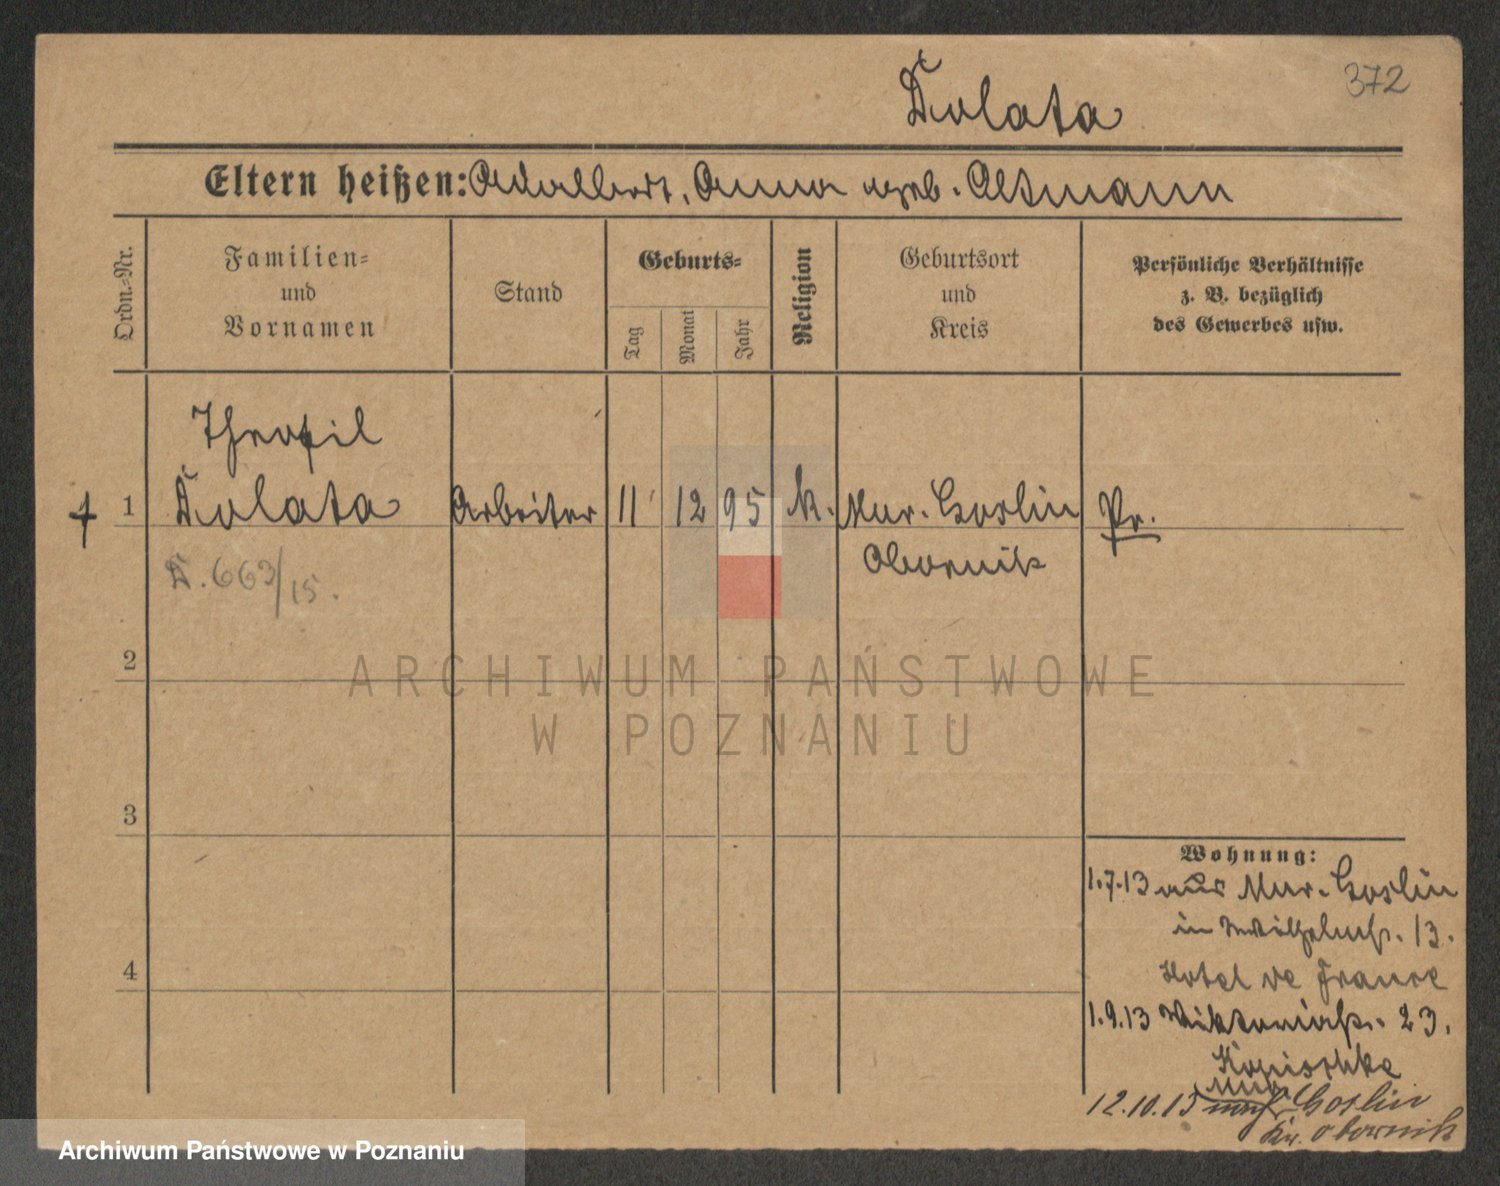 372
Dolata
Eltern heißen: Adalbert, Anna geb. Altmann
Ordn.-Nr.
Familien-
und
Vornamen
Stand
Geburts-
Tag
Monat
Jahr
Religion
Geburtsort
und
Kreis
Persönliche Verhältnisse
z. B. bezüglich
des Gewerbes usw.
Theofil
1 Dolata Arbeiter 11 12 95 k. Mur. Goslin Pr.
Obornik
D. 663/15.
2
ARCHIWUM PAŃSTWOWE
W POZNANIU
3
Wohnung:
1.7.13 aus Mur. Goslin
in Wilhelmstr. 13.
Hotel de France
4
1.9.13 Viktoriastr. 23.
Kopischke
12.10.15 nach Mur Goslin
Kr. Obornik
Archiwum Państwowe w Poznaniu